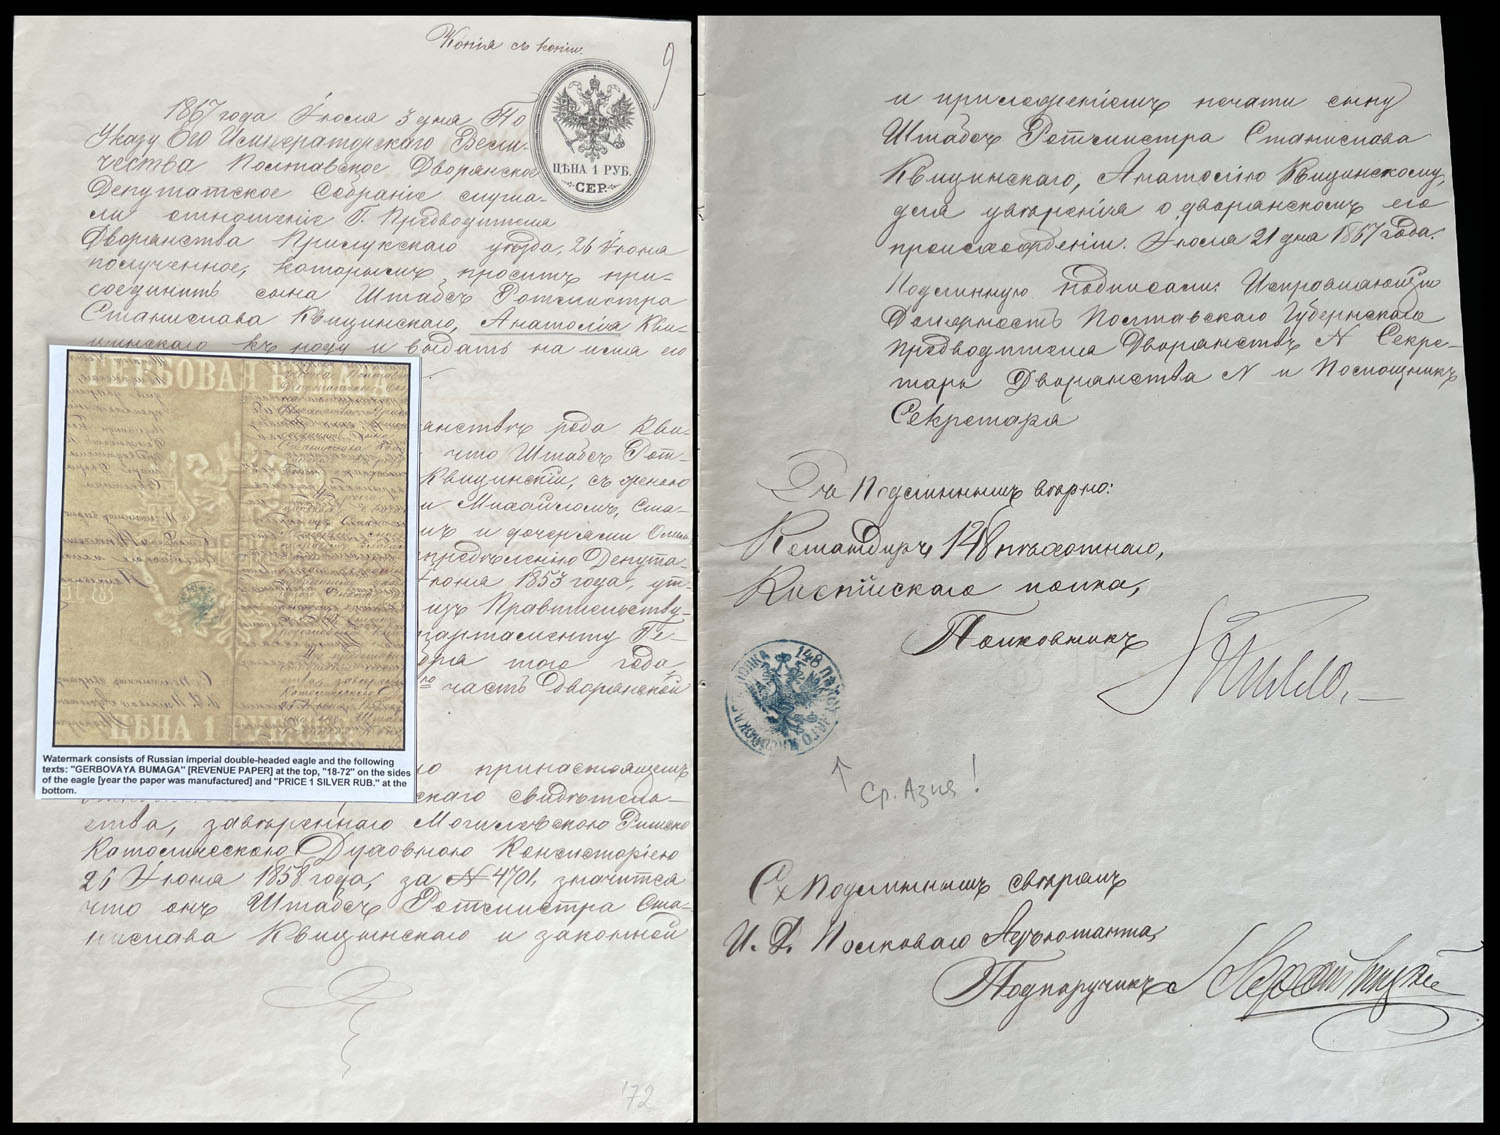 Копія съ копіи.
9
ЦѢНА 1 РУБ.
СЕР.
1867 года Іюля 3 дня По
Указу Его Императорскаго Вели-
чества Полтавское Дворянское
Депутатское Собраніе слуша-
ли отношеніе Г. Предводителя
Дворянства Прилукскаго уѣзда, 26 Іюня
полученное, которымъ проситъ при-
соединить сына Штабсъ Ротмистра
Станислава Квицинскаго, Анатолія Кви-
цинскаго къ роду и выдать на имя его
анствѣ рода Кви-
что Штабсъ Рот-
Квицинскій, съ женою
и Михайломъ, Ста-
мъ и дочерями
предѣленію Депута-
Іюня 1853 года, ут-
изъ Правительству-
партаменту Ге-
бря того года,
часть Дворянской
о принастоящемъ
скаго свидѣтель-
ства, завѣреннаго Могилевскою Римско
Католическою Духовною Консисторіею
26 Іюня 1858 года, за № 4701, значится
что онъ Штабсъ Ротмистра Ста-
нислава Квицинскаго и законной
'72
ГЕРБОВАЯ БУМАГА
ЦѢНА 1 РУБ
Watermark consists of Russian imperial double-headed eagle and the following
texts: "GERBOVAYA BUMAGA" [REVENUE PAPER] at the top, "18-72" on the sides
of the eagle [year the paper was manufactured] and "PRICE 1 SILVER RUB." at the
bottom.
и приложеніемъ печати сыну
Штабсъ Ротмистра Станислава
Квицинскаго, Анатолію Квицинскому,
для увѣренія о дворянскомъ его
происхожденіи. Іюля 21 дня 1867 года.
Подлинную подписали: Исправляющій
Должность Полтавскаго Губернскаго
Предводителя Дворянства N Секре-
тарь Дворянства N и Помощникъ
Секретаря
Съ Подлиннымъ вѣрно:
Командиръ 148 пѣхотнаго,
Каспійскаго полка,
Полковникъ
148 ПѢХОТНАГО КАСПІЙСКАГО ПОЛКА
Ср. Азия!
Съ Подлиннымъ свѣрялъ
И. Д. Полковаго Адъютанта,
Подпоручикъ